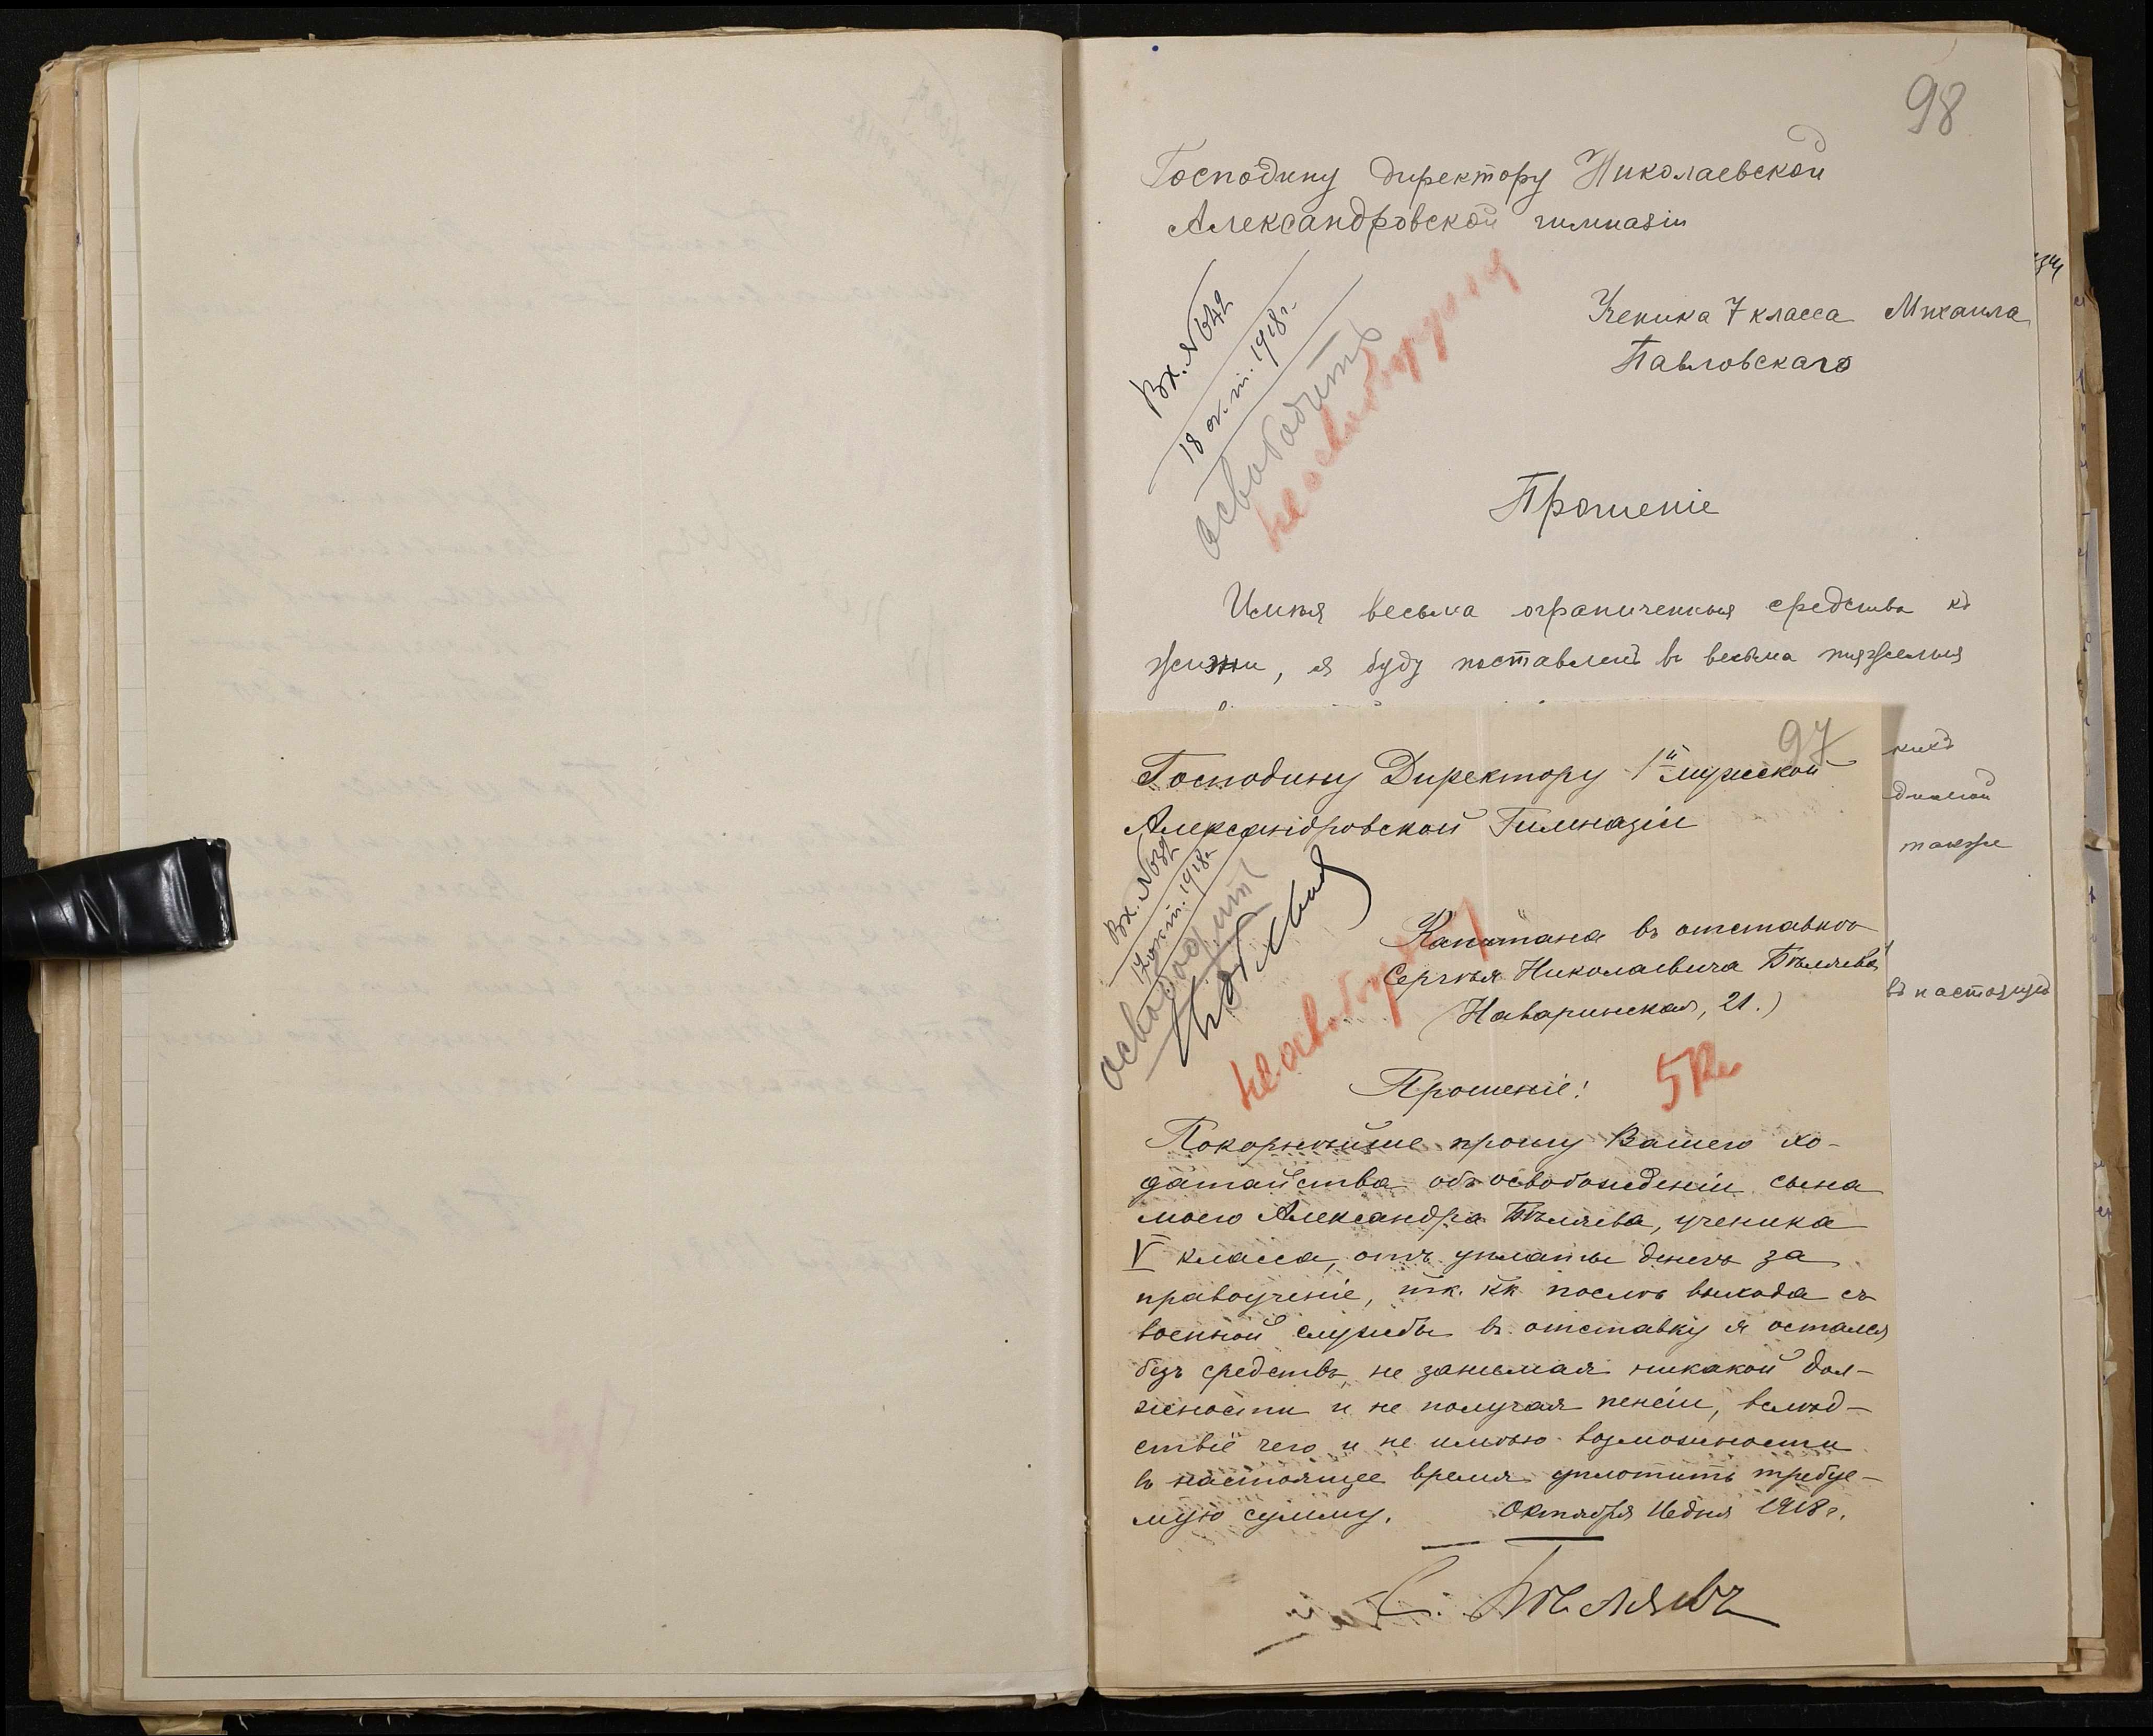 98
Господину директору Николаевской
Александровской гимназіи
Вх. №
18 ок. 1918 г.
освободить
не освобожд
Ученика 7 класса Михаила
Павловскаго
Прошеніе
Имѣя весьма ограниченныя средства къ
жизни, я буду поставленъ въ весьма тяжелыя
также
въ настоящ
97
Господину Директору 1й мужской
Александровской Гимназіи
Вх. №
17 окт. 1918 г.
освободить
не освоб
Капитана въ отставкѣ
Сергѣя Николаевича Бѣляева
(Наваринская, 21.)
Прошеніе!
Покорнѣйше прошу Вашего хо-
датайства объ освобожденіи сына
моего Александра Бѣляева, ученика
V класса, отъ уплаты денегъ за
правоученіе, тк. кк. послѣ выхода съ
военной службы въ отставку я остался
безъ средствъ, не занимая никакой дол-
жности и не получая пенсіи, вслѣд-
ствіе чего и не имѣю возможности
въ настоящее время уплотить требуе-
мую сумму. Октября дня 1918 г.
С. Бѣляевъ